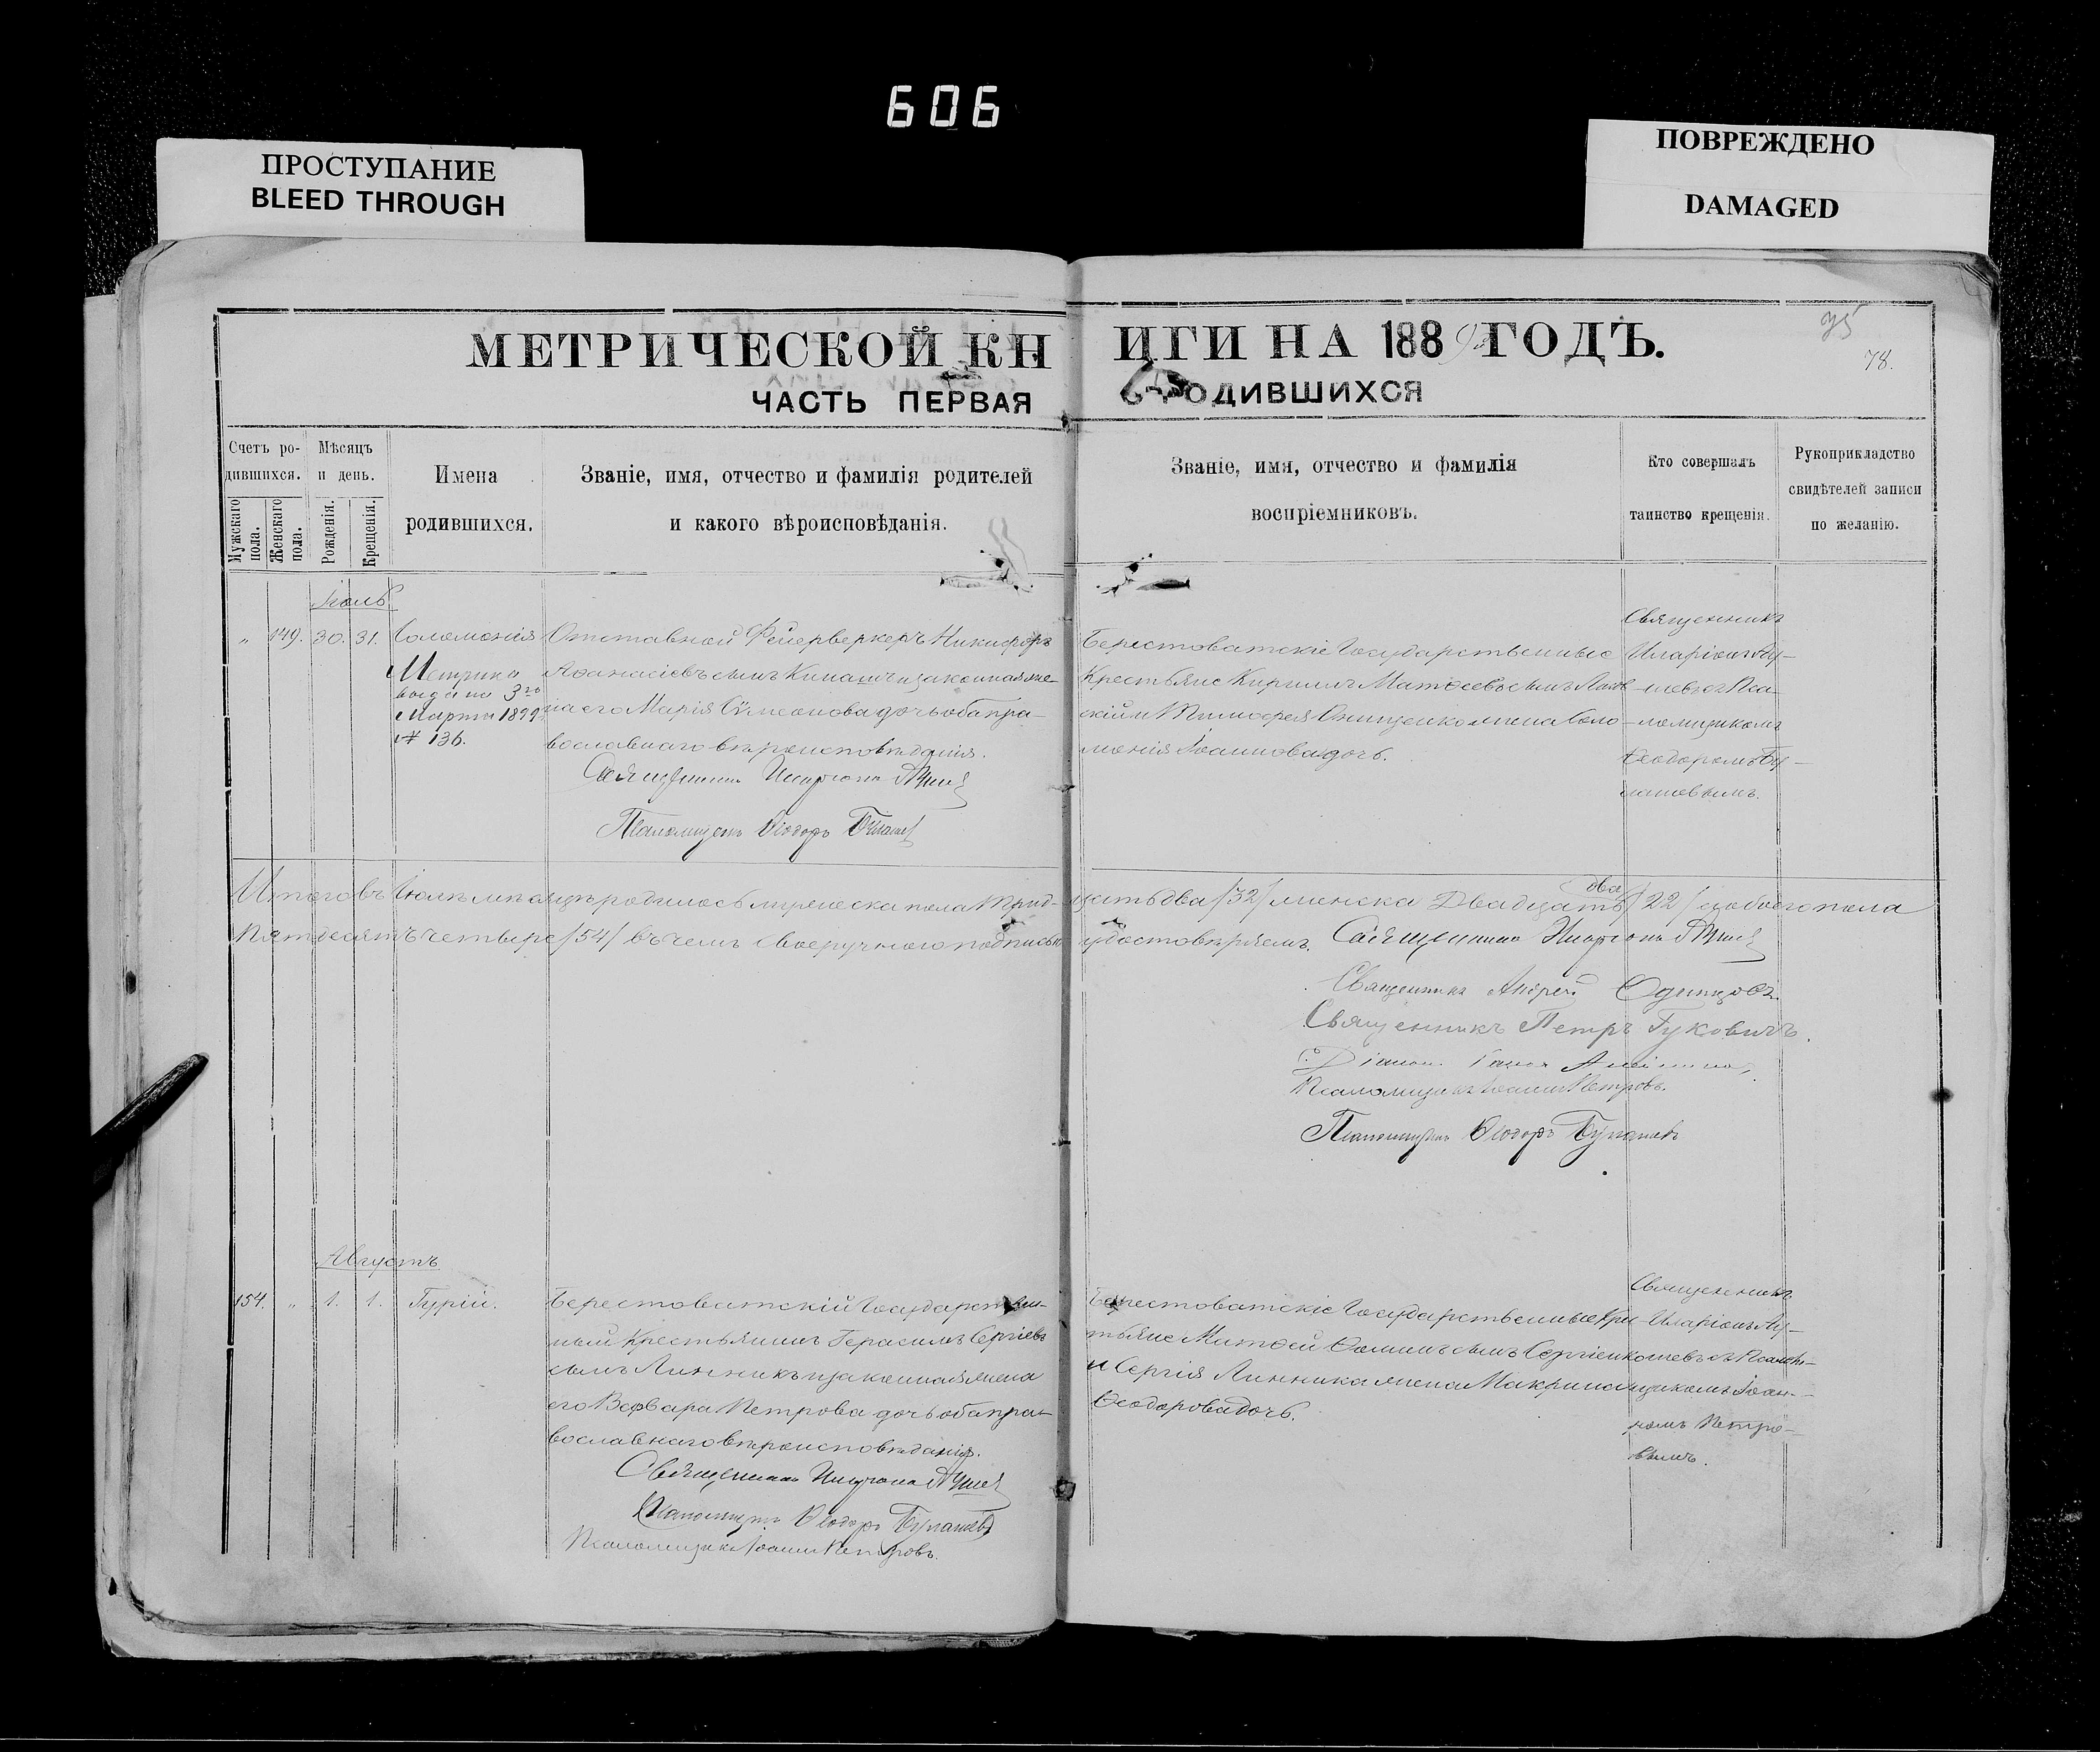 606
ПРОСТУПАНИЕ
BLEED THROUGH
ПОВРЕЖДЕНО
DAMAGED
МЕТРИЧЕСКОЙ КН
ИГИ НА 1889 ГОДЪ.
75
78.
ЧАСТЬ ПЕРВАЯ
ОДИВШИХСЯ
Счетъ ро-
дившихся.
Мужскаго пола.
Женскаго пола.
Мѣсяцъ
и день.
Рожденія.
Крещенія.
Имена
родившихся.
Званіе, имя, отчество и фамилія родителей
и какого вѣроисповѣданія.
Званіе, имя, отчество и фамилія
воспріемниковъ.
Кто совершалъ
таинство крещенія.
Рукоприкладство
свидѣтелей записи
по желанію.
Іюль
" 149. 30. 31. Соломонія
Метрика
выдана 3го
Марта 1899
№ 136.
Отставной Фейерверкеръ Никифоръ
Аѳанасіевъ сынъ и законная же-
на его Марія Сѵмеонова дочь оба пра-
вославнаго вѣроисповѣданія.
Священникъ Иларіонъ
Псаломщикъ Ѳеодоръ
Берестоватскіе Государственные
Крестьяне Кириллъ Матѳеевъ сынъ
и Тимофея Онищенко жена Соло-
монія Іоаннова дочь.
Священникъ
Иларіонъ
Пса-
ломщикомъ
Ѳеодоромъ Бу-
Итого въ Іюлѣ мѣсяцѣ родилось мужеска пола трид-
цать два /32/ женска Двадцать два /22/ обоего пола
Пятдесятъ четыре /54/ въ чемъ своеручною подписью
удостовѣряемъ. Священникъ Иларіонъ
Священникъ Андрей Одинцовъ.
Священникъ Петръ Гуковичъ.
Псаломщикъ Іоаннъ Петровъ.
Псаломщикъ Ѳеодоръ
Августъ
154. " 1. 1. Гурій.
Берестоватскій Государствен-
ный Крестьянинъ Герасимъ Сергіевъ
сынъ Линникъ и законная жена
его Варвара Петрова дочь оба пра-
вославнаго вѣроисповѣданія.
Священникъ Иларіонъ
Псаломщикъ Ѳеодоръ
Псаломщикъ Іоаннъ Петровъ.
Берестоватскіе Государственные Кре-
стьяне Матѳей Ѳоминъ сынъ Сергіенко
и Сергія Линника жена Макрина
Ѳеодорова дочь.
Священникъ
Иларіонъ
щикомъ Іоан-
номъ Петро-
вымъ.